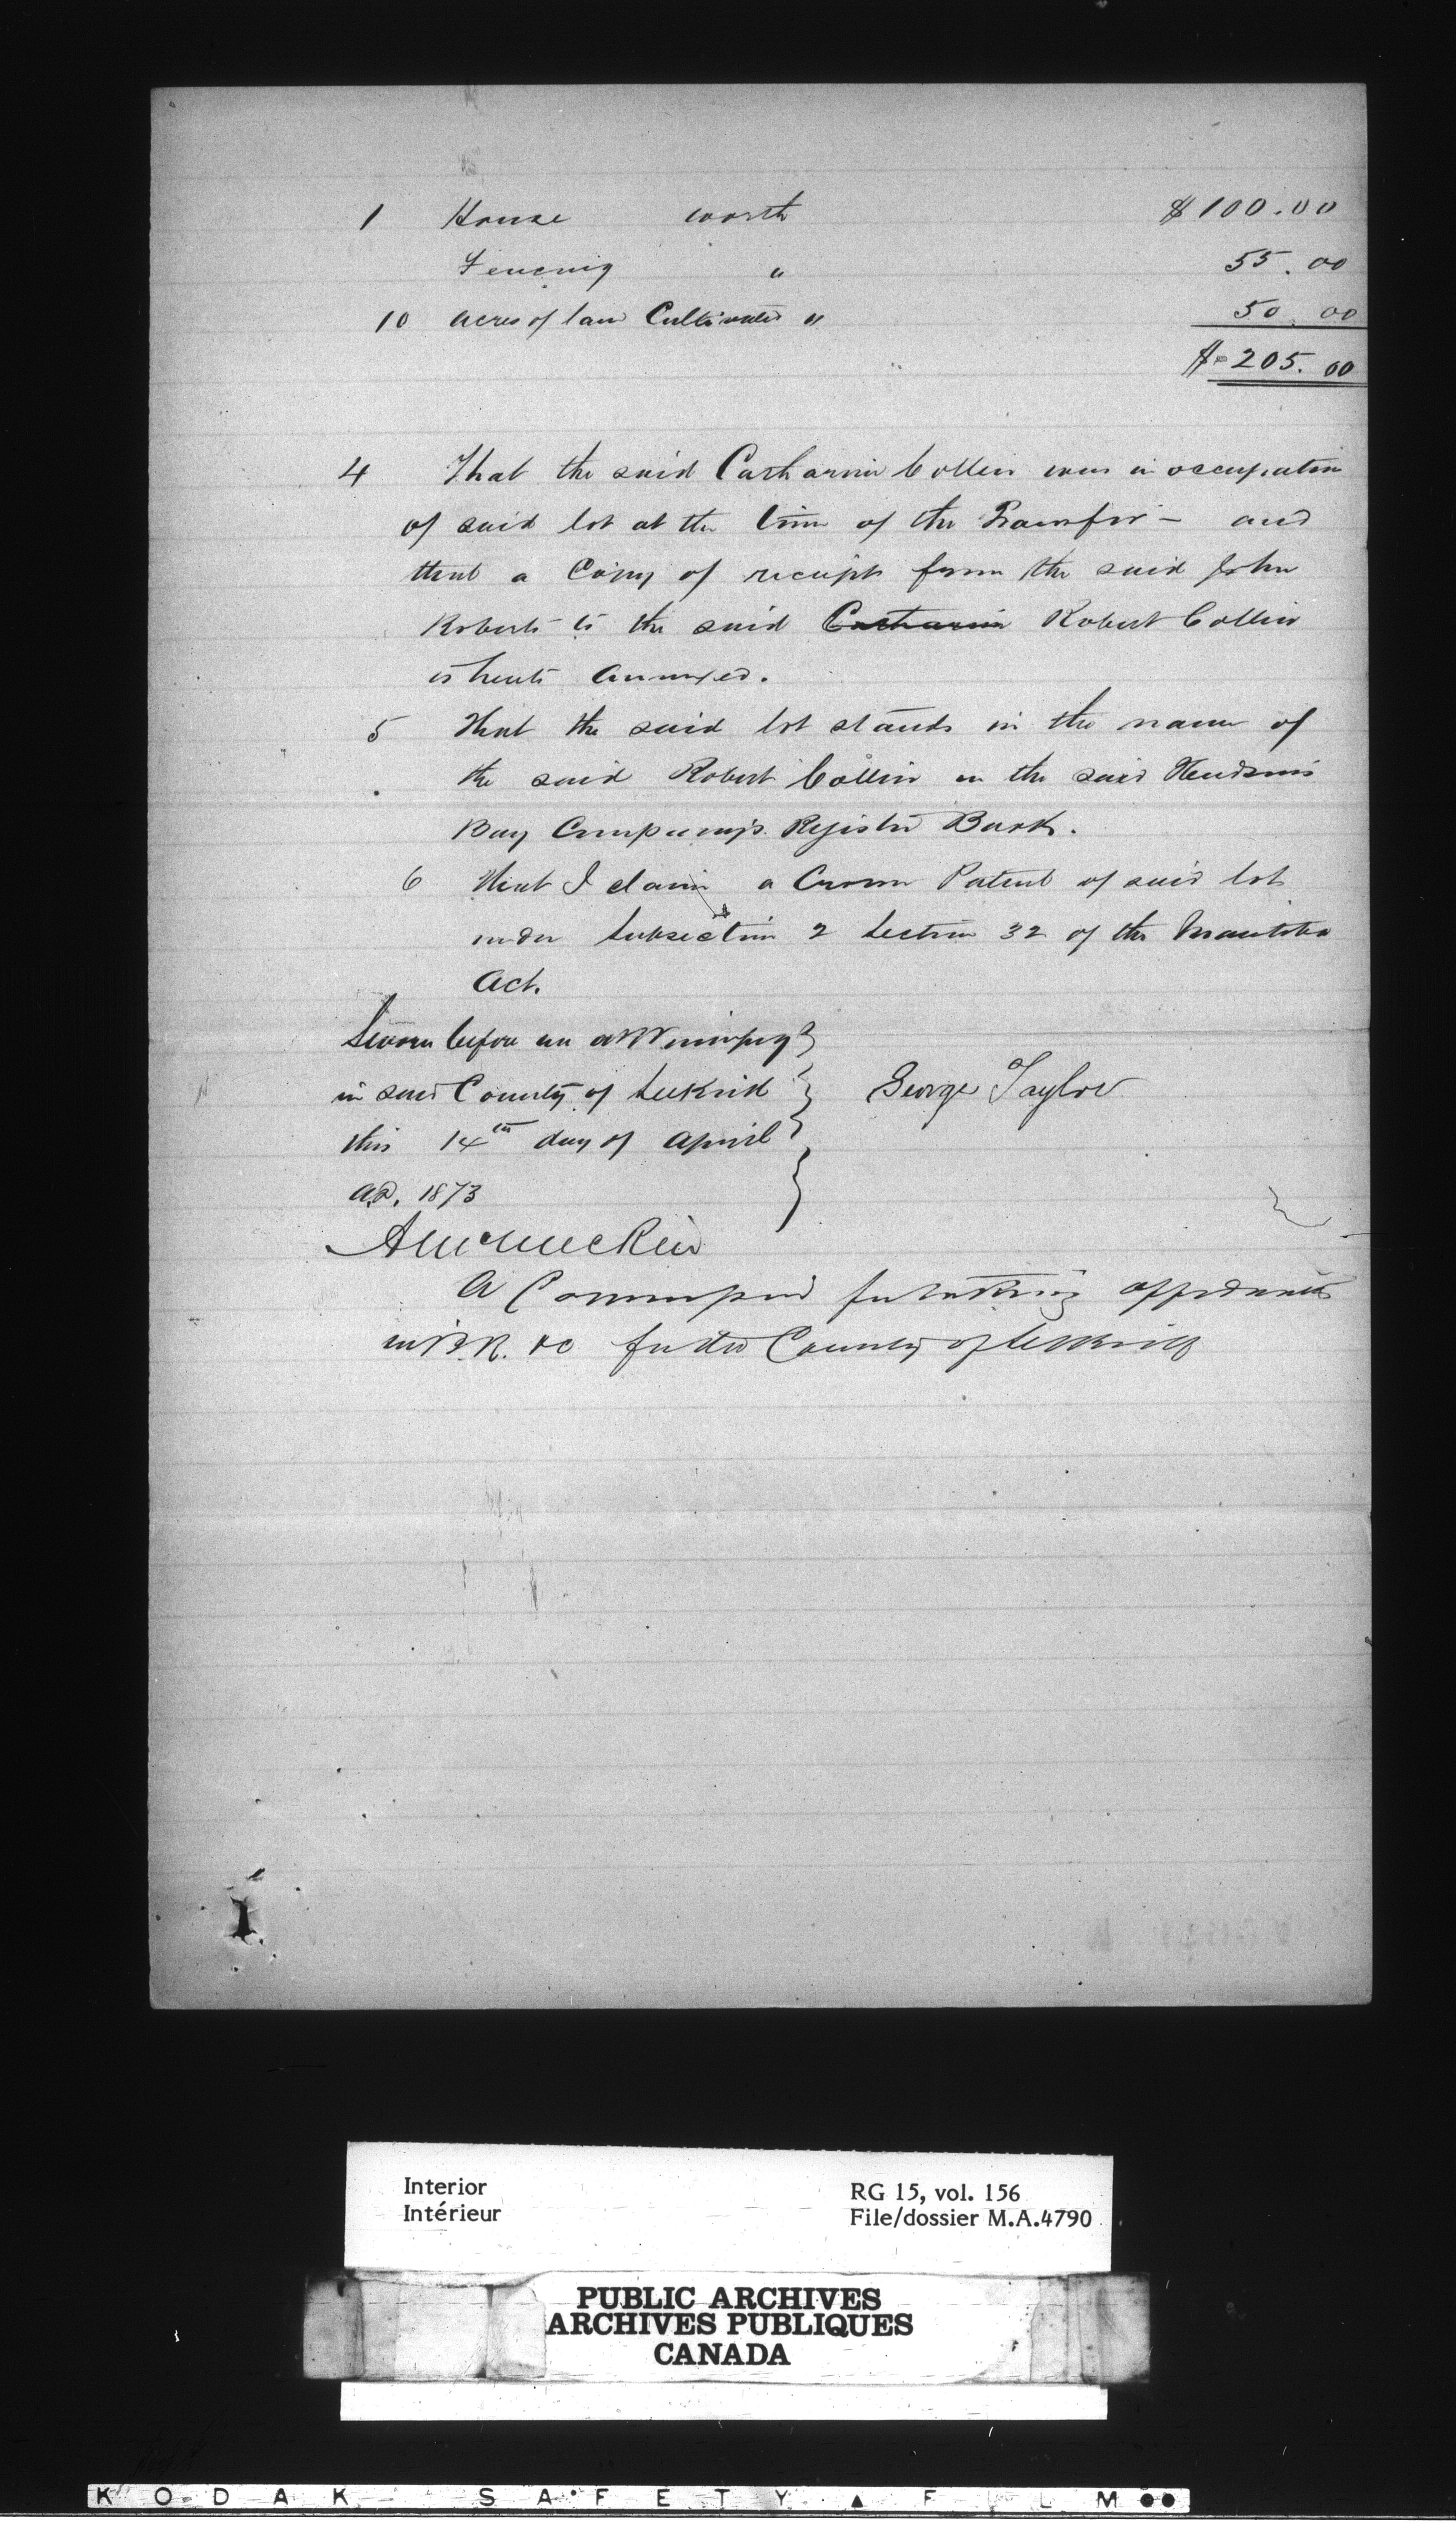 1 House worth $100.00
Fencing " 55.00
10 Acres of land Cultivated " 50.00
$205.00
4 That the said Catharine Collin was in occupation
of said lot at the time of the Transfer – and
that a Copy of receipt from the said John
Roberts to the said Catharine Robert Collin
is hereto annexed.
5 That the said lot stands in the name of
the said Robert Collin in the said Hudson's
Bay Company's Register Book.
6 That I claim a Crown Patent of said lot
under Subsection 2 Section 32 of the Manitoba
Act.
Sworn before me at Winnipeg
in said County of Selkirk
this 14th day of April
A.D. 1873
George Taylor
A McMicken
A Commissioner for taking affidavits
in B.R. &c for the County of Selkirk
Interior
Intérieur
RG 15, vol. 156
File/dossier M.A.4790
PUBLIC ARCHIVES
ARCHIVES PUBLIQUES
CANADA
KODAK SAFETY FILM